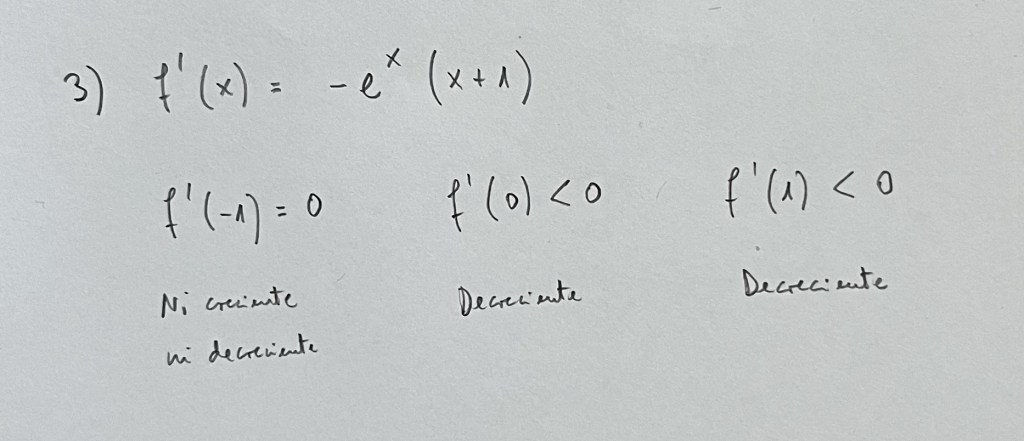 3) f'(x) = -eˣ (x+1)
f'(-1) = 0 f'(0) < 0 f'(1) < 0
Ni creciente Decreciente Decreciente
ni decreciente